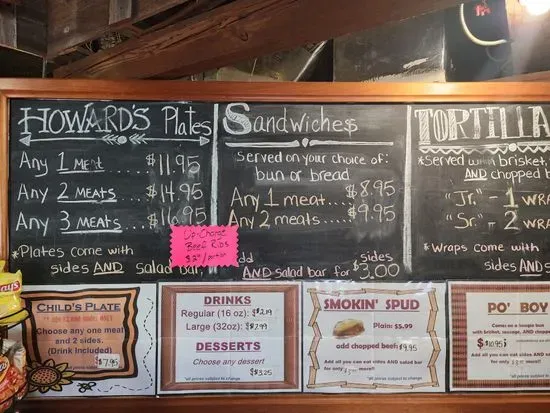 HOWARD'S Plates
Any 1 MEAT.....$11.95
Any 2 MEATS.....$14.95
Any 3 MEATS.....$16.95
*Plates come with
sides AND salad bar
Up-Charge
Beef Ribs
Sandwiches
Served on your choice of:
bun or bread
Any 1 meat....$8.95
Any 2 meats...$9.95
sides
AND salad bar for $3.00
TORTILLA
*Served with brisket,
AND chopped
"Jr." - 1 WRA
"Sr." - 2 WRA
*Wraps come with
sides AND
Lay's
CHILD'S PLATE
Choose any one meat
and 2 sides.
(Drink included)
$7.95
DRINKS
Regular (16 oz): $2.19
Large (32oz): $2.99
DESSERTS
Choose any dessert
$3.25
*all prices subject to change
SMOKIN' SPUD
Plain: $5.99
add chopped beef: $9.95
Add all you can eat sides AND salad bar
for only
*all prices subject to change
PO' BOY
Comes on a hoagie bun
with brisket, sausage, AND chopped
$10.95
Add all you can eat sides AND salad
for only
*all prices subject to change